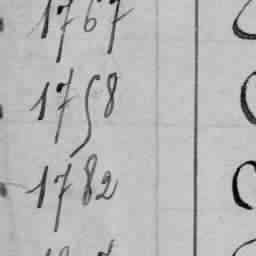 1767
1758
1782